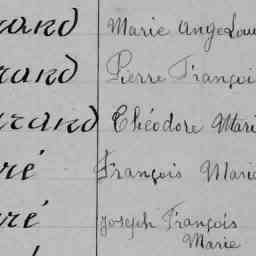 rand Marie Ange Lou
rand Pierre Françoi
urand Théodore Mari
ré François Marie
ré Joseph François
Marie